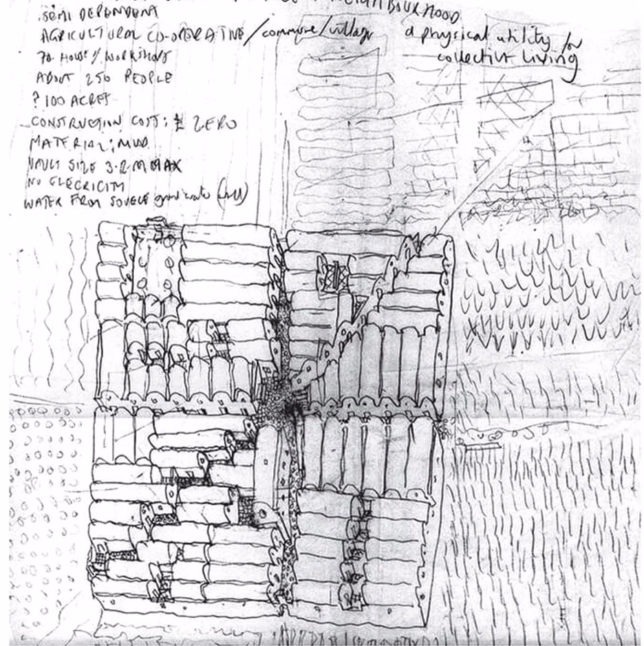 NEIGHBOURHOOD
SEMI DEPENDENT
AGRICULTURAL CO-OPERATIVE / commune / village
a physical utility for
collective living
70 HOUSES / WORKSHOPS
ABOUT 250 PEOPLE
? 100 ACRES
CONSTRUCTION COST: ZERO
MATERIAL: MUD
VAULT SIZE 3.2 M MAX
NO ELECRICITY
WATER FROM SOURCE